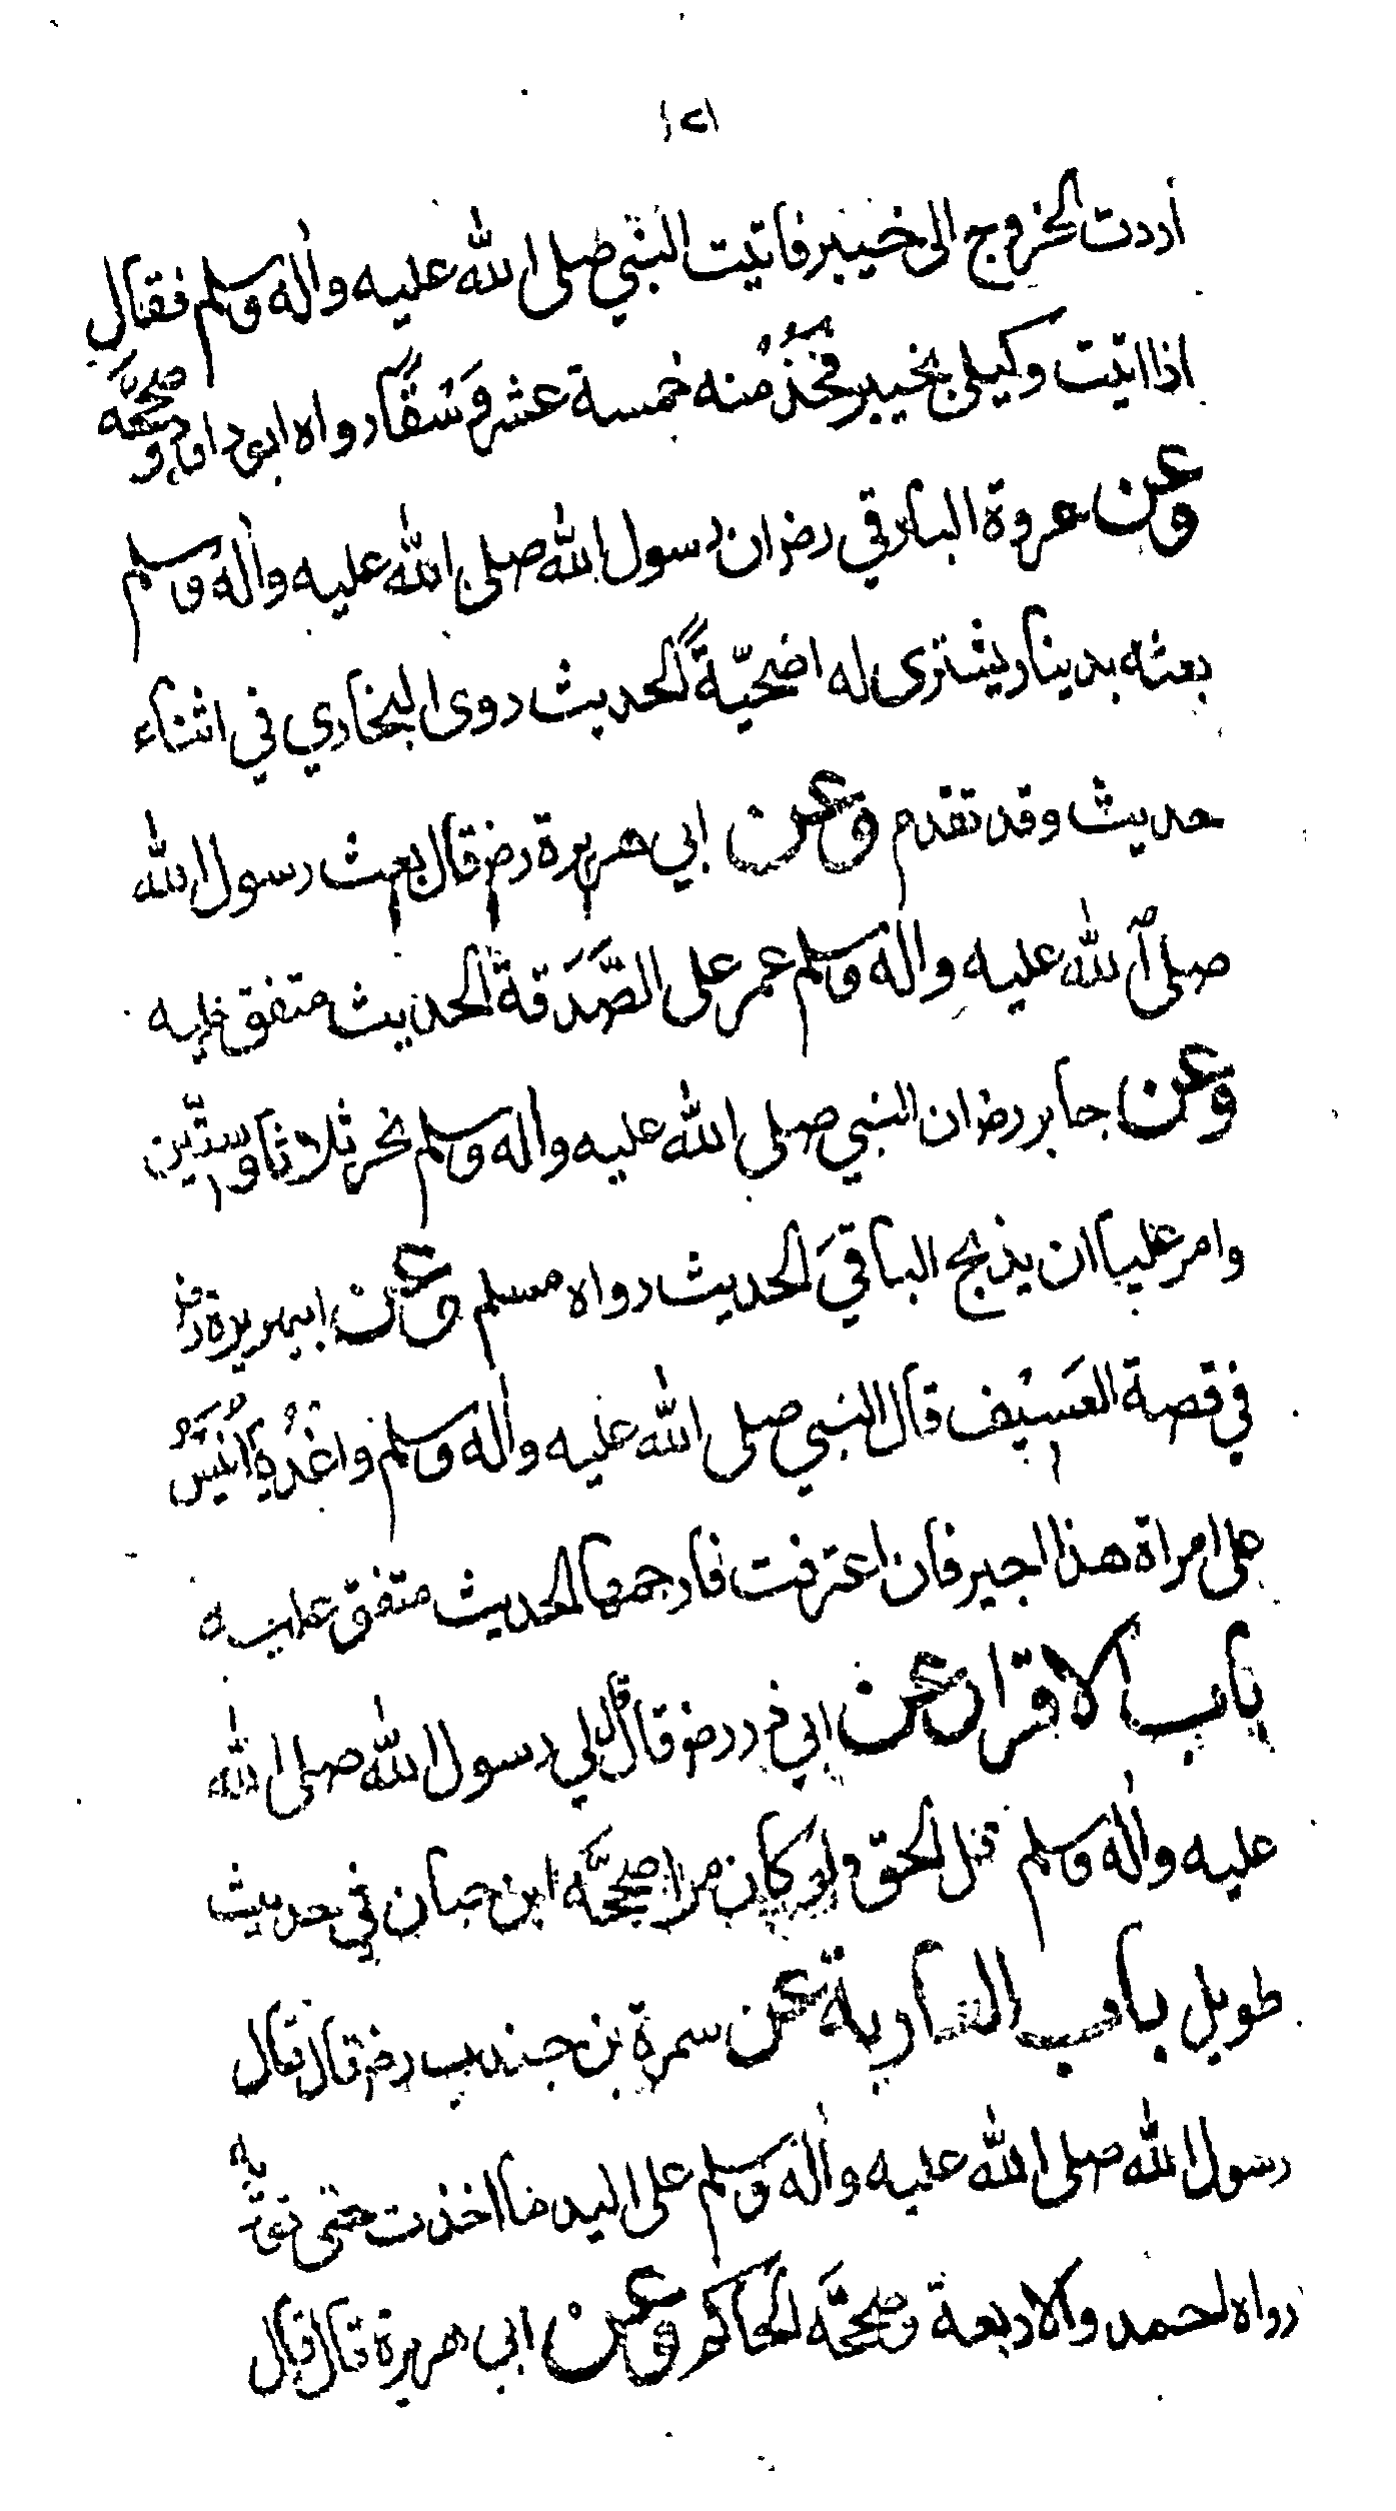 ١٢١
أردت الخروج الى خيبر فاتيت النبي صلى الله عليه واله وسلم فقال
اذا اتيت وكيلي بخيبر فخذ منه خمسة عشر وَسْقًا رواه ابو داود وصحَّحه
وعن عروة البارقي رضـ ان رسول الله صلى الله عليه واله وسلم
بعثه بدينار يشترى له اضحيّةً الحديث روى البخاري في اثناء
حديث وقد تقدم وعن ابي هريرة رضـ قال بعث رسول الله
صلى الله عليه واله وسلم عمر على الصَّدَقة الحديث متفق عليه
وعن جابر رضـ ان النبي صلى الله عليه واله وسلم نحر ثلاثا وستّين
وامر عليا ان يذبح الباقيَ الحديث رواه مسلم وعن ابيهريرة رضـ
في قصة العَسِيْف قال النبي صلى الله عليه واله وسلم واغْدُ يا اُنَيْسُ
على امراة هذا اجير فان اعترفت فارجمها الحديث متفق عليه
باب الاقرار عن ابي ذر رضـ قال قال لي رسول الله صلى الله
عليه واله وسلم قل الحقّ ولو كان مرا صحَّحه ابن حبان في حديث
طويل باب العارية عن سمرة بن جندب رضـ قال قال
رسول الله صلى الله عليه واله وسلم على اليد ما اخذت حتى تؤدّيه
رواه احمد والاربعة وصحَّحه الحاكم وعن ابي هريرة قال قال